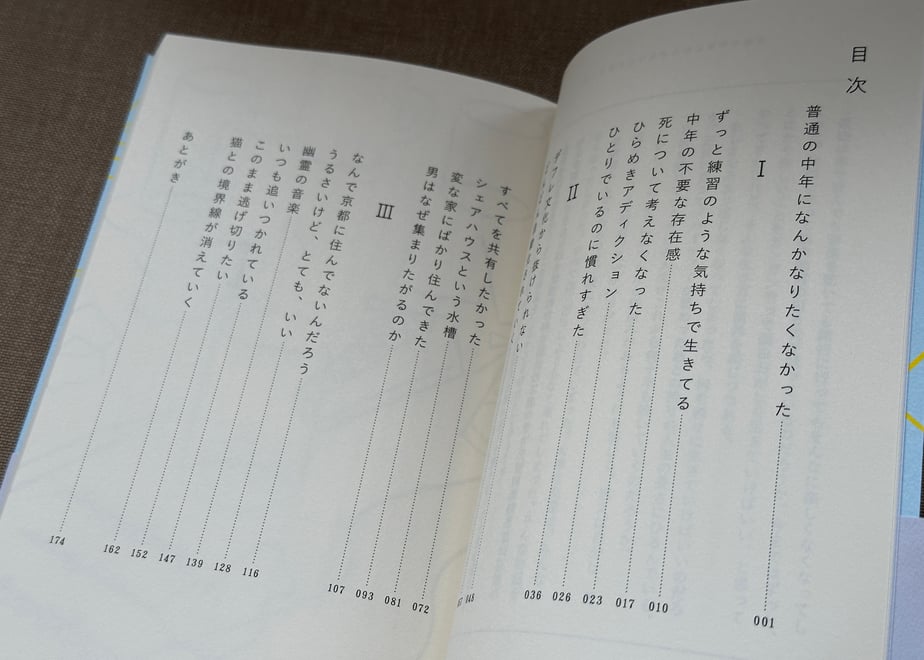 目次
普通の中年になんかなりたくなかった 001
Ⅰ
ずっと練習のような気持ちで生きてる 010
中年の不要な存在感 017
死について考えなくなった 023
ひらめきアディクション 026
ひとりでいるのに慣れすぎた 036
Ⅱ
デフレ文化から抜けられない
すべてを共有したかった 072
シェアハウスという水槽 081
変な家にばかり住んできた 093
男はなぜ集まりたがるのか 107
Ⅲ
なんで京都に住んでないんだろう 116
うるさいけど、とても、いい 128
幽霊の音楽 139
いつも追いつかれている 147
このまま逃げ切りたい 152
猫との境界線が消えていく 162
あとがき 174